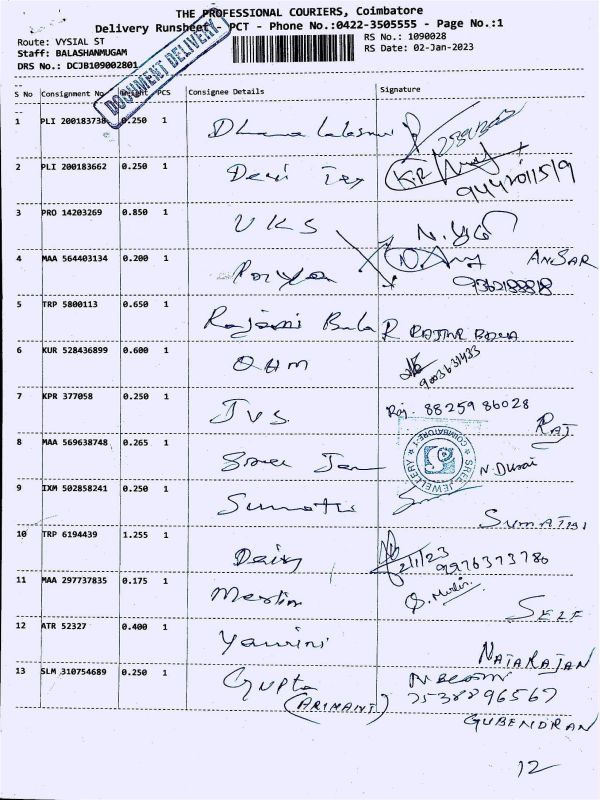 THE PROFESSIONAL COURIERS, Coimbatore
Delivery Runsheet - PCT - Phone No.:0422-3505555 - Page No.:1
Route: VYSIAL ST
RS No.: 1090028
Staff: BALASHANMUGAM
RS Date: 02-Jan-2023
DRS No.: DCJB109002801
DOCUMENT DELIVERY
S No Consignment No Weight PCS Consignee Details Signature
1 PLI 200183738 0.250 1
2 PLI 200183662 0.250 1 Devi
K.R
9442011519
3 PRO 14203269 0.850 1 VKS
4 MAA 564403134 0.200 1 ANSAR
5 TRP 5800113 0.650 1 Rajami Bala
6 KUR 528436899 0.600 1 OHM
9003631433
7 KPR 377058 0.250 1 JVS Raj. 88259 86028
RAJ
8 MAA 569638748 0.265 1 Sree N. Durai
SREE JEWELLERY COIMBATORE-1
9 IXM 502858241 0.250 1 Sumathi
SUMATHI
10 TRP 6194439 1.255 1 Daisy 2/1/23
9976373780
11 MAA 297737835 0.175 1 Merlin
SELF
12 ATR 52327 0.400 1 Yamini
NATARAJAN
13 SLM 310754689 0.250 1 Gupta
(ARIHANT) 7538896567
GUBENDRAN
12